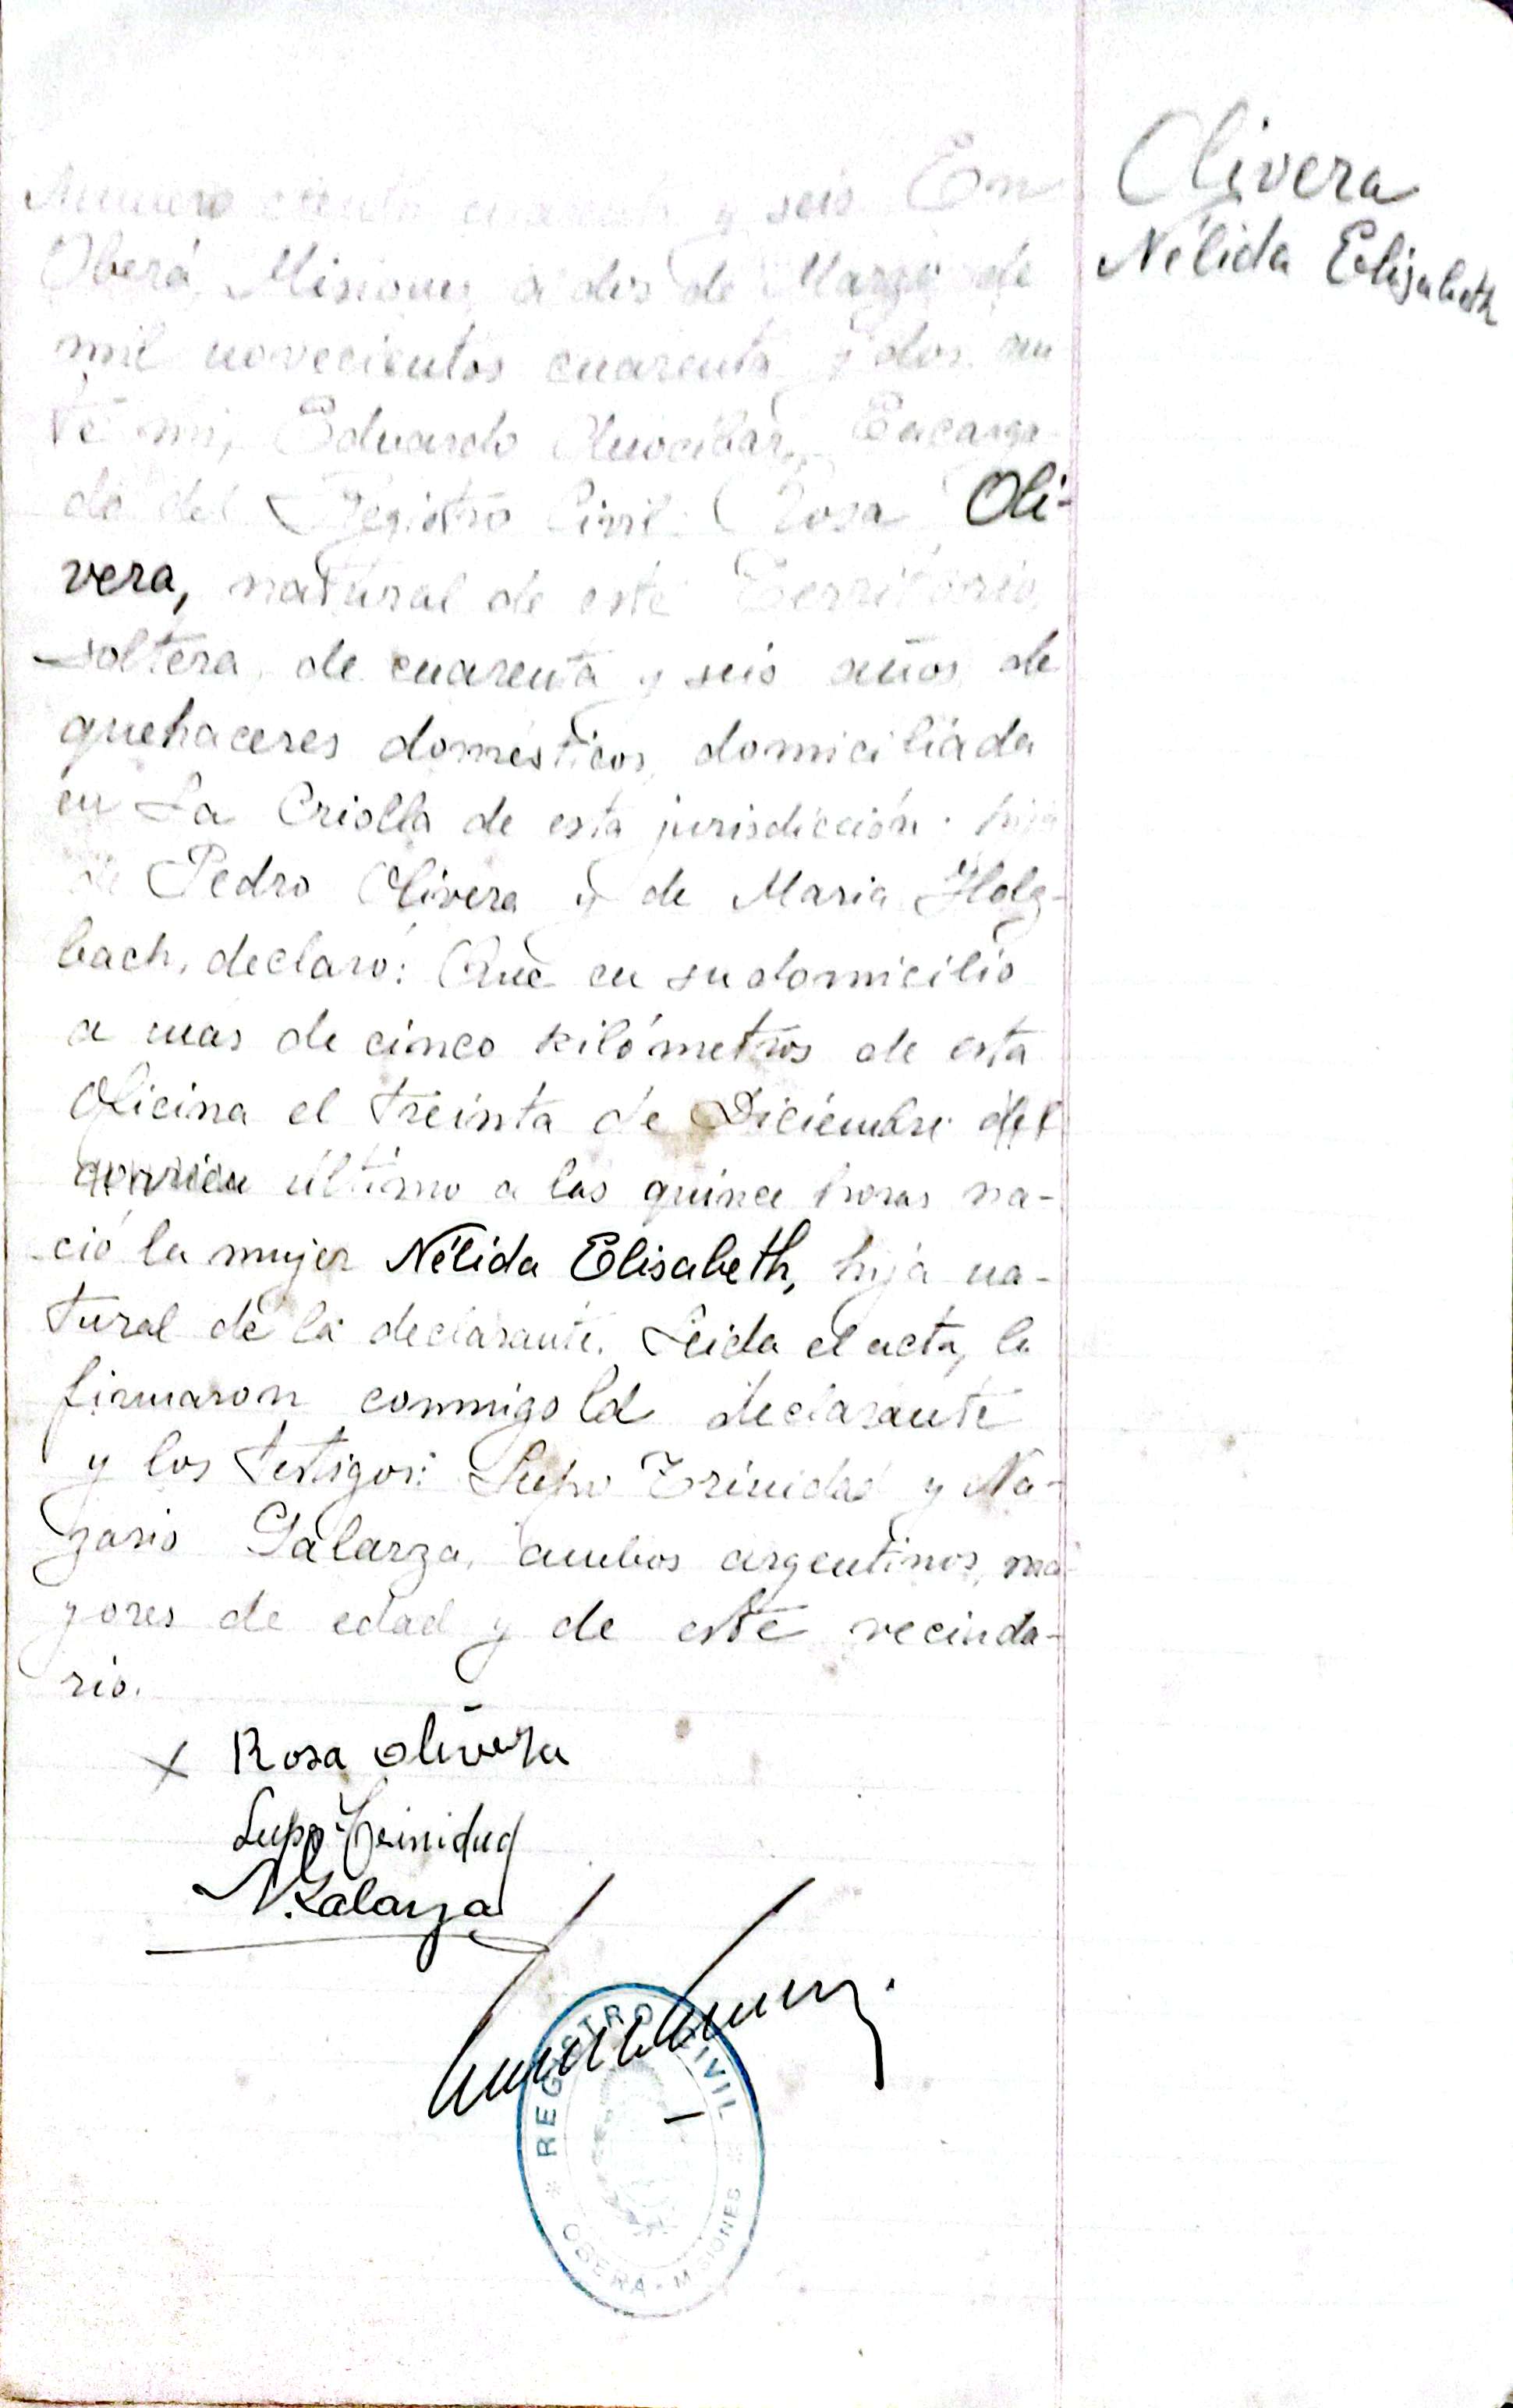 Olivera
Nélida Elisabeth
Número ciento cuarenta y seis En
Oberá, Misiones a dos de Marzo de
mil novecientos cuarenta y dos, an
te mi, Eduardo Encarga-
do del Registro Civil: Rosa Oli-
vera, natural de este Territorio,
soltera, de cuarenta y seis años, de
quehaceres domésticos, domiciliada
en La Criolla de esta jurisdicción, hija
de Pedro Olivera y de Maria Holz-
bach, declaró: Que en su domicilio
a mas de cinco kilómetros de esta
Oficina el treinta de Diciembre del
último a las quince horas na-
ció la mujer Nélida Elisabeth, hija na-
tural de la declarante. Leida el acta, la
firmaron conmigo la declarante
y los testigos: Lupo Trinidad y Na-
zario Galarza, ambos argentinos, ma-
yores de edad y de este vecinda-
rio.
x Rosa olivera
Lupo Trinidad
N. Galarza
REGISTRO CIVIL
* OBERA - MISIONES *